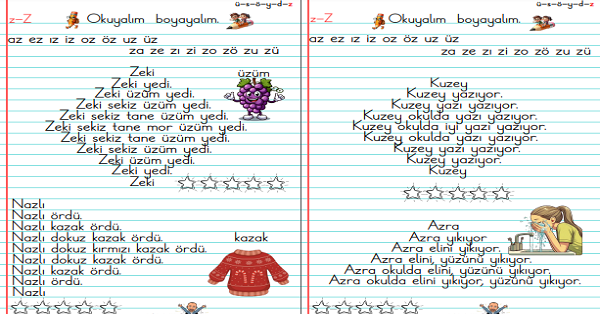 ü-s-ö-y-d-z
z-Z Okuyalım boyayalım.
az ez ız iz oz öz uz üz
za ze zı zi zo zö zu zü
Zeki
üzüm
Zeki yedi.
Zeki üzüm yedi.
Zeki sekiz üzüm yedi.
Zeki sekiz tane üzüm yedi.
Zeki sekiz tane mor üzüm yedi.
Zeki sekiz tane üzüm yedi.
Zeki sekiz üzüm yedi.
Zeki üzüm yedi.
Zeki yedi.
Zeki
Nazlı
Nazlı ördü.
Nazlı kazak ördü.
Nazlı dokuz kazak ördü.
kazak
Nazlı dokuz kırmızı kazak ördü.
Nazlı dokuz kazak ördü.
Nazlı kazak ördü.
Nazlı ördü.
Nazlı
ü-s-ö-y-d-z
z-Z Okuyalım boyayalım.
az ez ız iz oz öz uz üz
za ze zı zi zo zö zu zü
Kuzey
Kuzey yazıyor.
Kuzey yazı yazıyor.
Kuzey okulda yazı yazıyor.
Kuzey okulda iyi yazı yazıyor.
Kuzey okulda yazı yazıyor.
Kuzey yazı yazıyor.
Kuzey yazıyor.
Kuzey
Azra
Azra yıkıyor
Azra elini yıkıyor.
Azra elini, yüzünü yıkıyor.
Azra okulda elini, yüzünü yıkıyor.
Azra okulda elini yıkıyor, yüzünü yıkıyor.